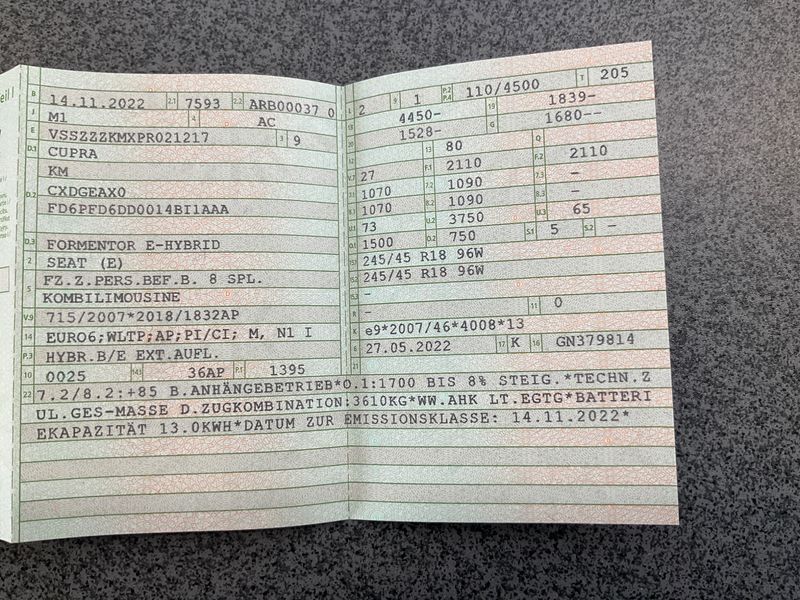 eil I
B 14.11.2022 2.1 7593 2.2 ARB00037 0
J M1 4 AC
E VSSZZZKMXPR021217 3 9
D.1 CUPRA
KM
D.2 CXDGEAX0
FD6PFD6DD0014BI1AAA
D.3 FORMENTOR E-HYBRID
2 SEAT (E)
5 FZ.Z.PERS.BEF.B. 8 SPL.
KOMBILIMOUSINE
V.9 715/2007*2018/1832AP
14 EURO6;WLTP;AP;PI/CI; M, N1 I
P.3 HYBR.B/E EXT.AUFL.
10 0025 14.1 36AP P.1 1395
L 2 9 1 P.2 P.4 110/4500 T 205
18 4450- 19 1839-
20 1528- G 1680--
12 13 80 Q
V.7 27 F.1 2110 F.2 2110
7.1 1070 7.2 1090 7.3 -
8.1 1070 8.2 1090 8.3 -
U.1 73 U.2 3750 U.3 65
O.1 1500 O.2 750 S.1 5 S.2 -
15.1 245/45 R18 96W
15.2 245/45 R18 96W
15.3 -
R - 11 0
K e9*2007/46*4008*13
6 27.05.2022 17 K 16 GN379814
21
22 7.2/8.2:+85 B.ANHÄNGEBETRIEB*O.1:1700 BIS 8% STEIG.*TECHN.Z
UL.GES-MASSE D.ZUGKOMBINATION:3610KG*WW.AHK LT.EGTG*BATTERI
EKAPAZITÄT 13.0KWH*DATUM ZUR EMISSIONSKLASSE: 14.11.2022*